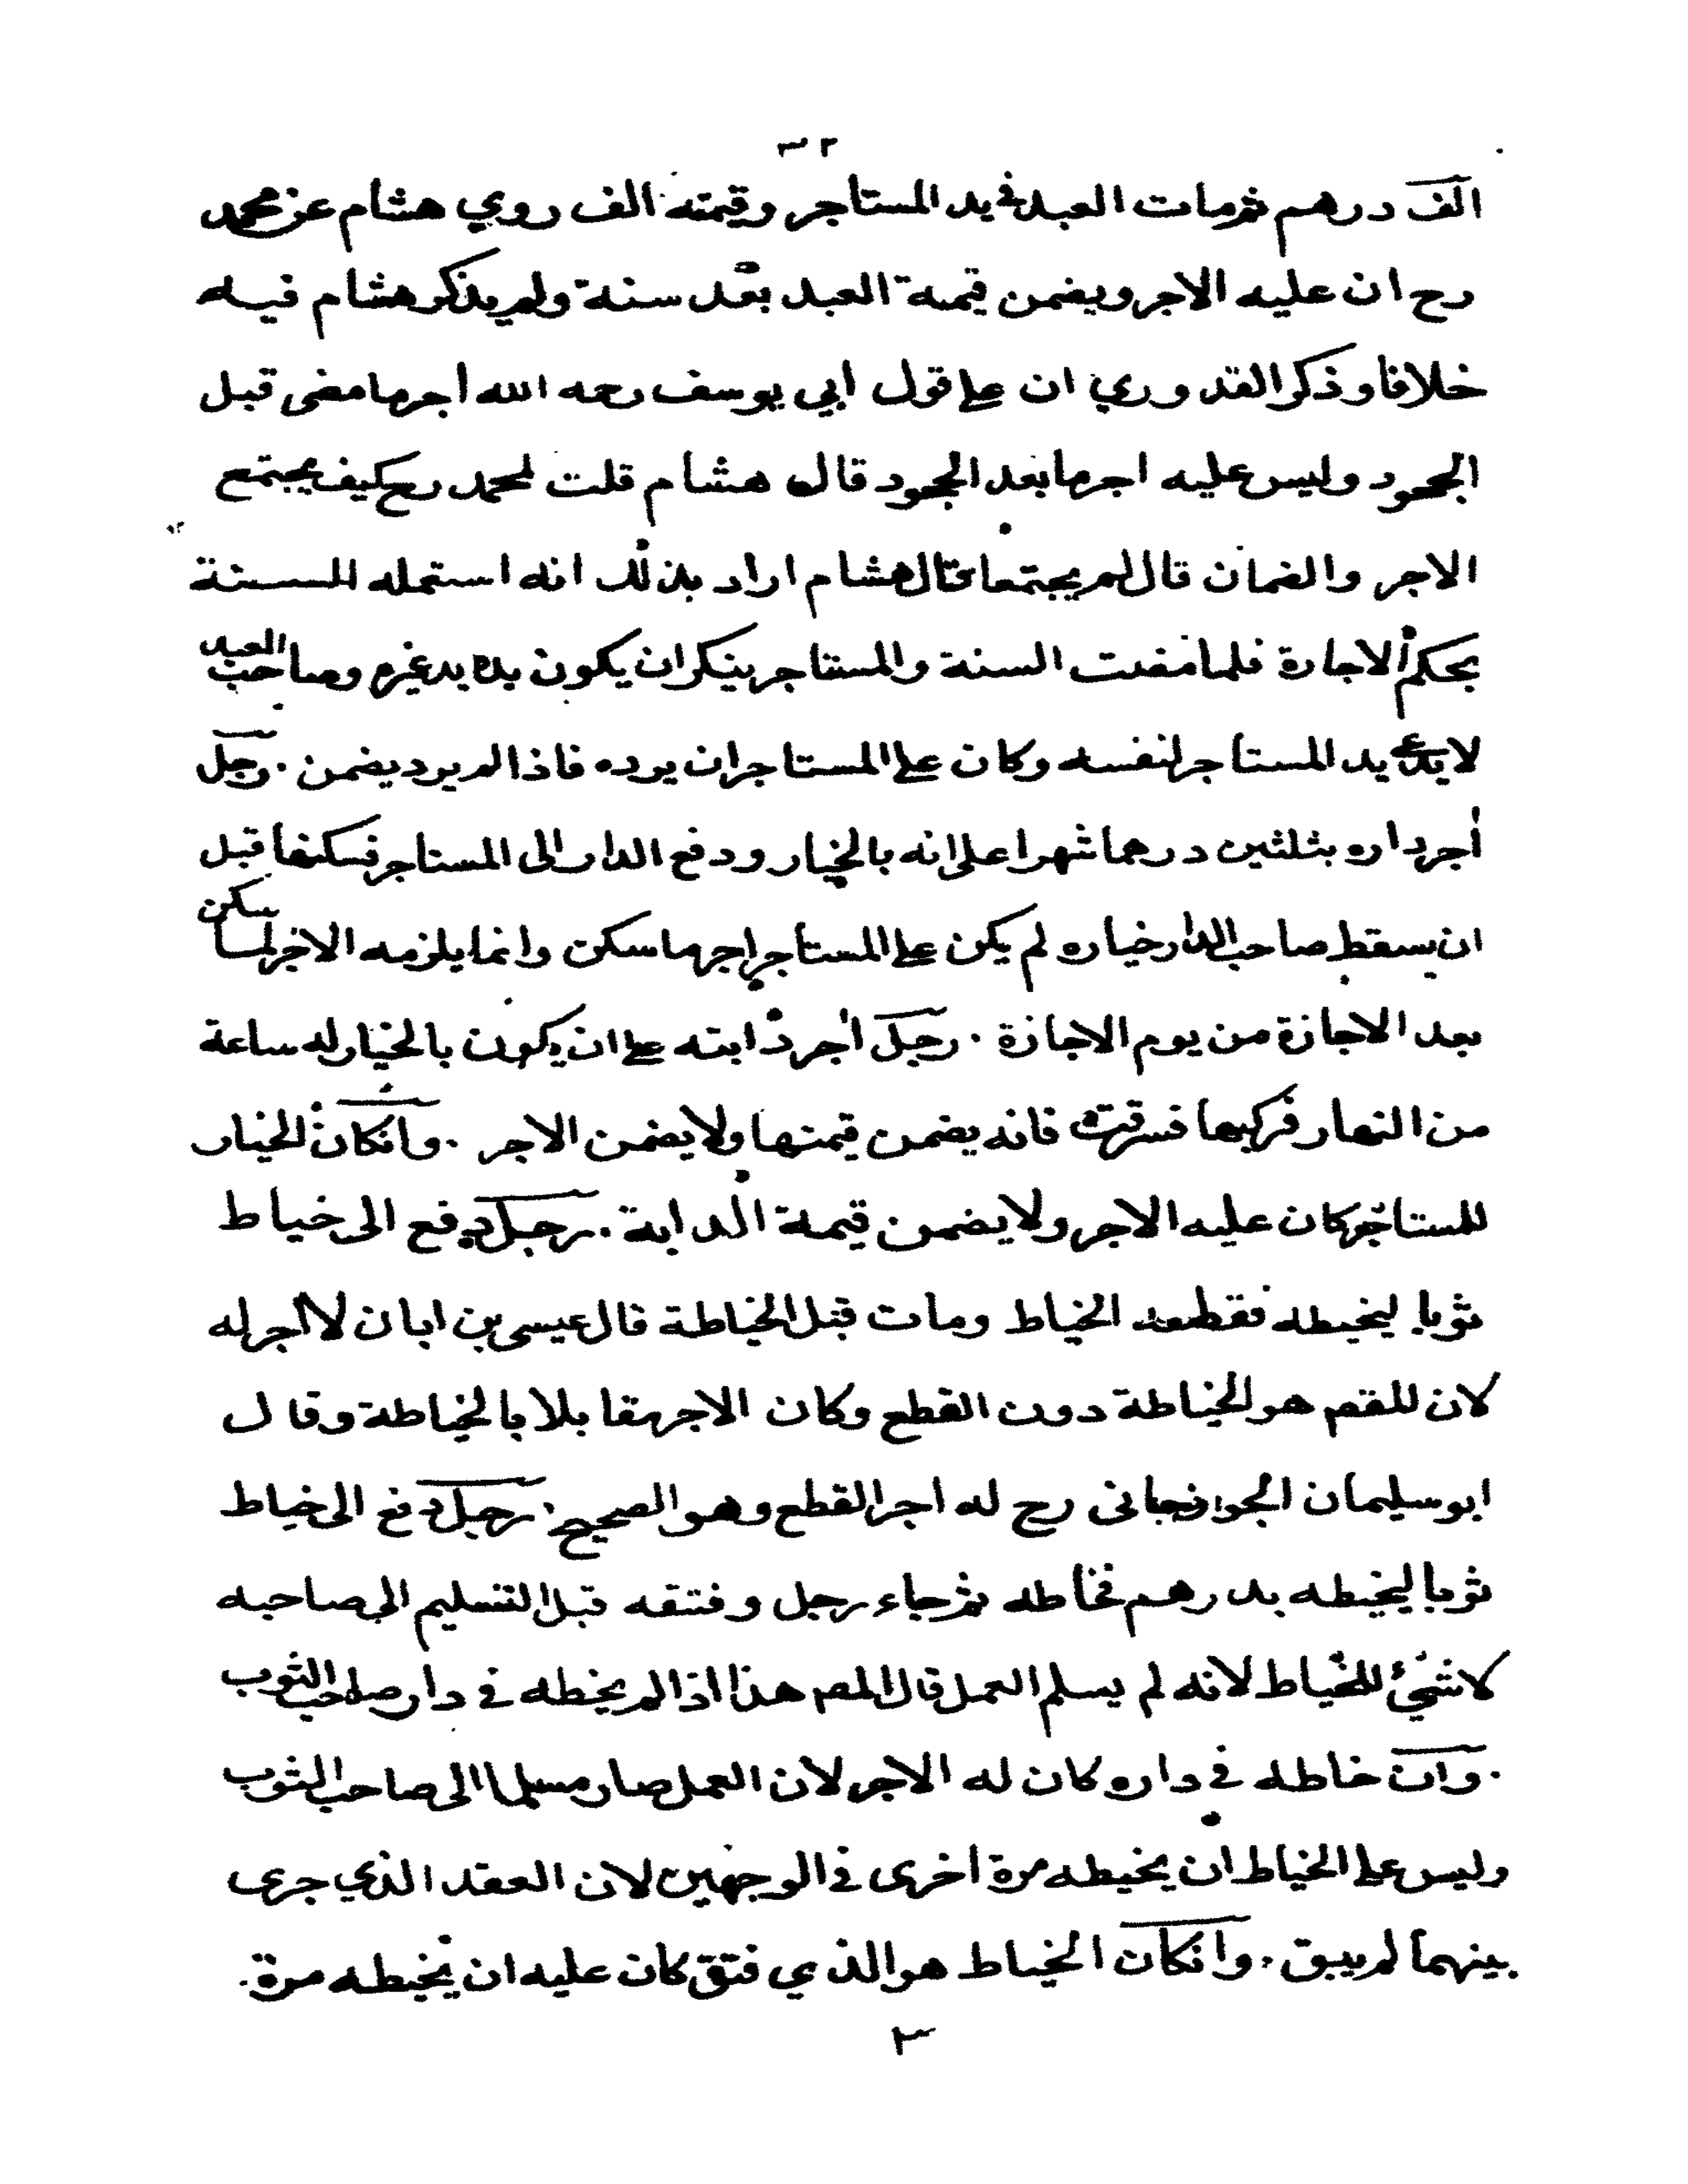 الف درهم ثم مات العبد في يد المستاجر وقيمته الف روي هشام عن محمد
رح ان عليه الاجر ويضمن قيمة العبد بعد سنة ولم يذكر هشام فيه
خلافا وذكر القدوري ان على قول ابي يوسف رحمه الله اجر ما مضى قبل
الجحود وليس عليه اجر ما بعد الجحود قال هشام قلت لمحمد رح كيف يجتمع
الاجر والضمان قال لم يجتمعا قال هشام اراد بذلك انه استعمله السنة
بحكم الاجارة فلما مضت السنة والمستاجر ينكر ان يكون يده يد غيره وصاحب العبد
لا يدعى يد المستاجر لنفسه وكان على المستاجر ان يرده فاذا لم يرد يضمن . رجل
اجر داره بثلثين درهما شهرا على انه بالخيار ودفع الدار الى المستاجر فسكنها قبل
ان يسقط صاحب الدار خياره لم يكن على المستاجر اجر ما سكن وانما يلزمه الاجر لما سكن
بعد الاجازة من يوم الاجازة . رجل اجر دابته على ان يكون بالخيار له ساعة
من النهار فركبها فسرقت فانه يضمن قيمتها ولا يضمن الاجر . وانكان الخيار
للمستاجر كان عليه الاجر ولا يضمن قيمة الدابة . رجل دفع الى خياط
ثوبا ليخيطه فقطعه الخياط ومات قبل الخياطة قال عيسى بن ابان لا اجر له
لان هو الخياطة دون القطع وكان الاجر مقابلا بالخياطة وقال
ابو سليمان الجوزجانى رح له اجر القطع وهو الصحيح . رجل دفع الى خياط
ثوبا ليخيطه بدرهم فخاطه ثم جاء رجل وفتقه قبل التسليم الى صاحبه
لا شئ للخياط لانه لم يسلم العمل قال المصم هذا اذا لم يخطه في دار صاحب الثوب
. وان خاطه في داره كان له الاجر لان العمل صار مسلما الى صاحب الثوب
وليس على الخياط ان يخيطه مرة اخرى في الوجهين لان العقد الذي جرى
بينهما لم يبق . وانكان الخياط هو الذي فتق كان عليه ان يخيطه مرة .